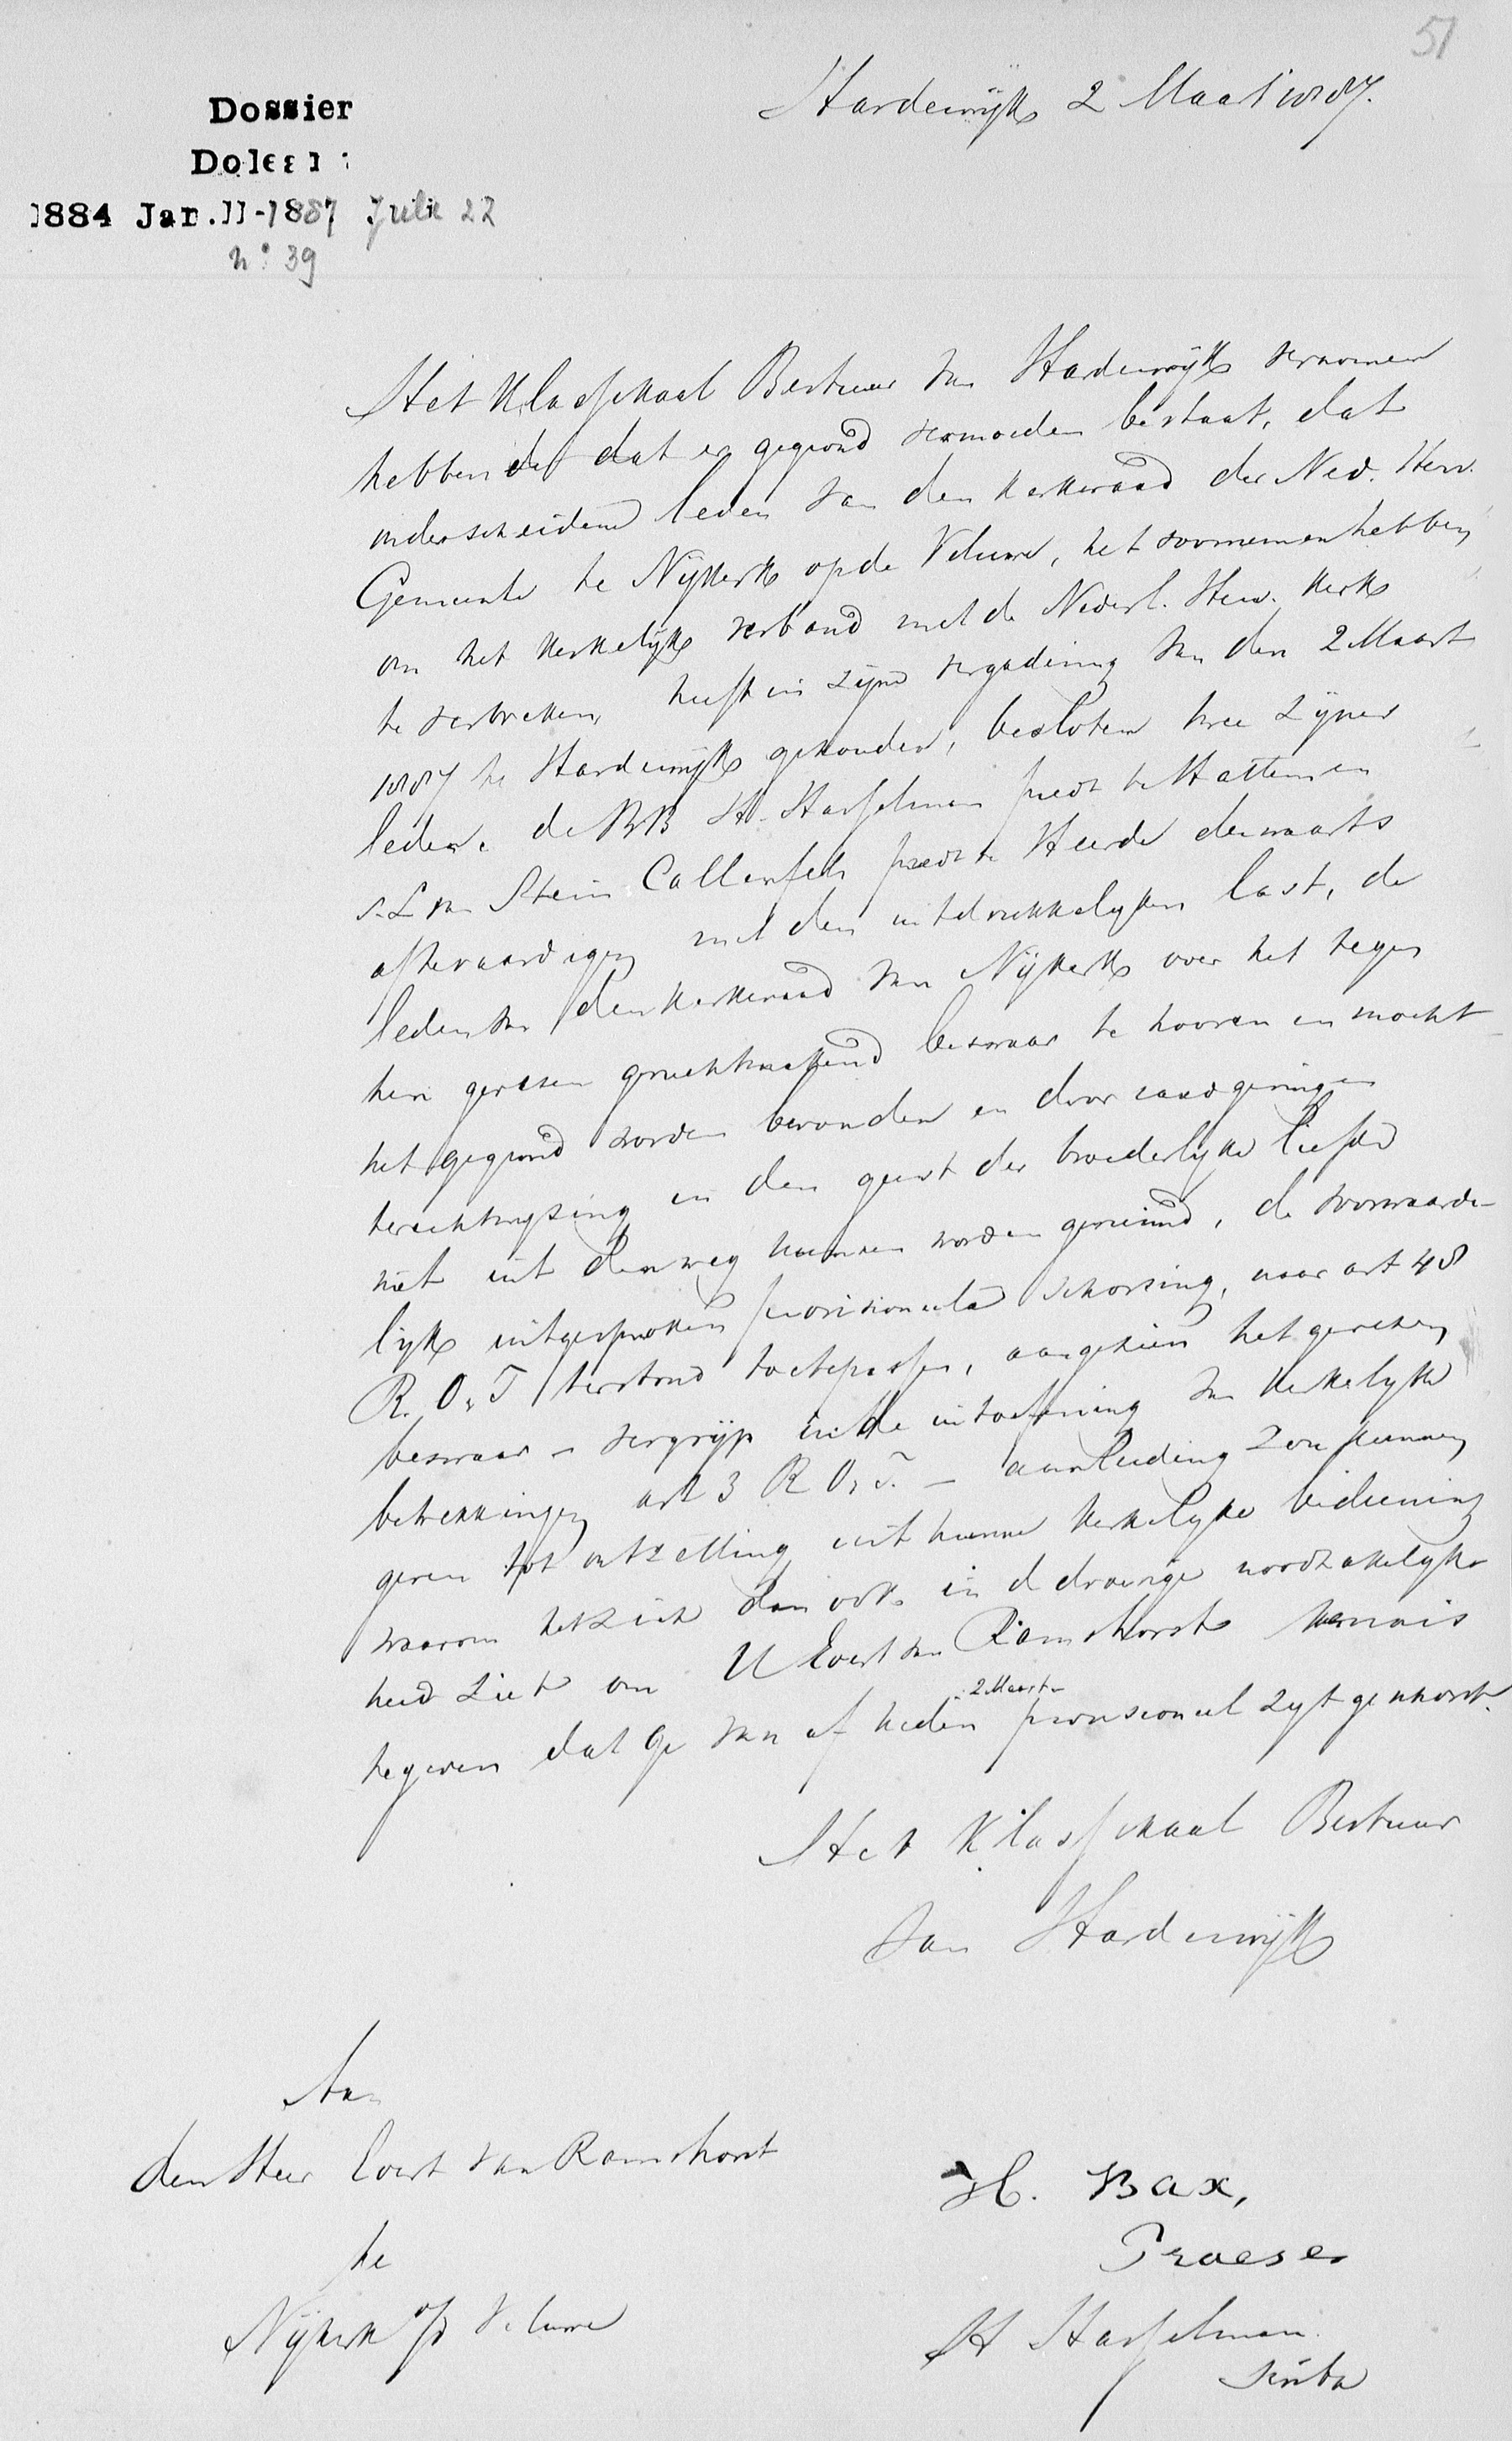 51
Dossier
Doleantie
1884 Jan. 11 - 1887 Julie 22
no 39
Harderwijk 2 Maart 1887.
Het Klassikaal Bestuur van Harderwijk vernomen
hebbende dat er gegrond vermoeden bestaat, dat
onderscheidene leden van den kerkeraad der Ned. Herv.
Gemeente te Nijkerk op de Veluwe, het voornemen hebben
om het kerkelijk verband met de Nederl. Herv. Kerk
te verbreken, heeft in zijne vergadering van den 2 Maart
1887 te Harderwijk gehouden, besloten twee zijner
leden, de BB H. Hasselman predt te Hattem en
v. L. van Stein Callenfels predt te Heerde derwaarts
aftevaardigen met den uitdrukkelijken last, de
leden van den kerkeraad van Nijkerk over het tegen
hen gerezen gruchtmakend bezwaar te hooren en mocht
het gegrond worden bevonden en door raadgevingen
terechtwijzing in den geest der broederlijke liefde
niet uit den weg kunnen worden geruimd, de voorwaarde-
lijk uitgesproken provisioneele schorsing, naar art 48
R. O. T terstond toetepassen, aangezien het gerezen
bezwaar - vergrijp in de uitoefening van kerkelijke
betrekkingen art 3 R O. T. - aanleiding zou kunnen
geven tot ontzetting uit hunne kerkelijke bediening
waarom het zich dan ook in de droevige noodzakelijk-
heid ziet om U Evert van Ramshorst kennis
te geven dat ge van af heden 2 Maart provisioneel zijt geschorst.
Het Klassikaal Bestuur
van Harderwijk
Aan
den Heer Evert van Ramshorst
te
Nijkerk o/d Veluwe
H. Bax,
Praeses
H Hasselman
Scriba